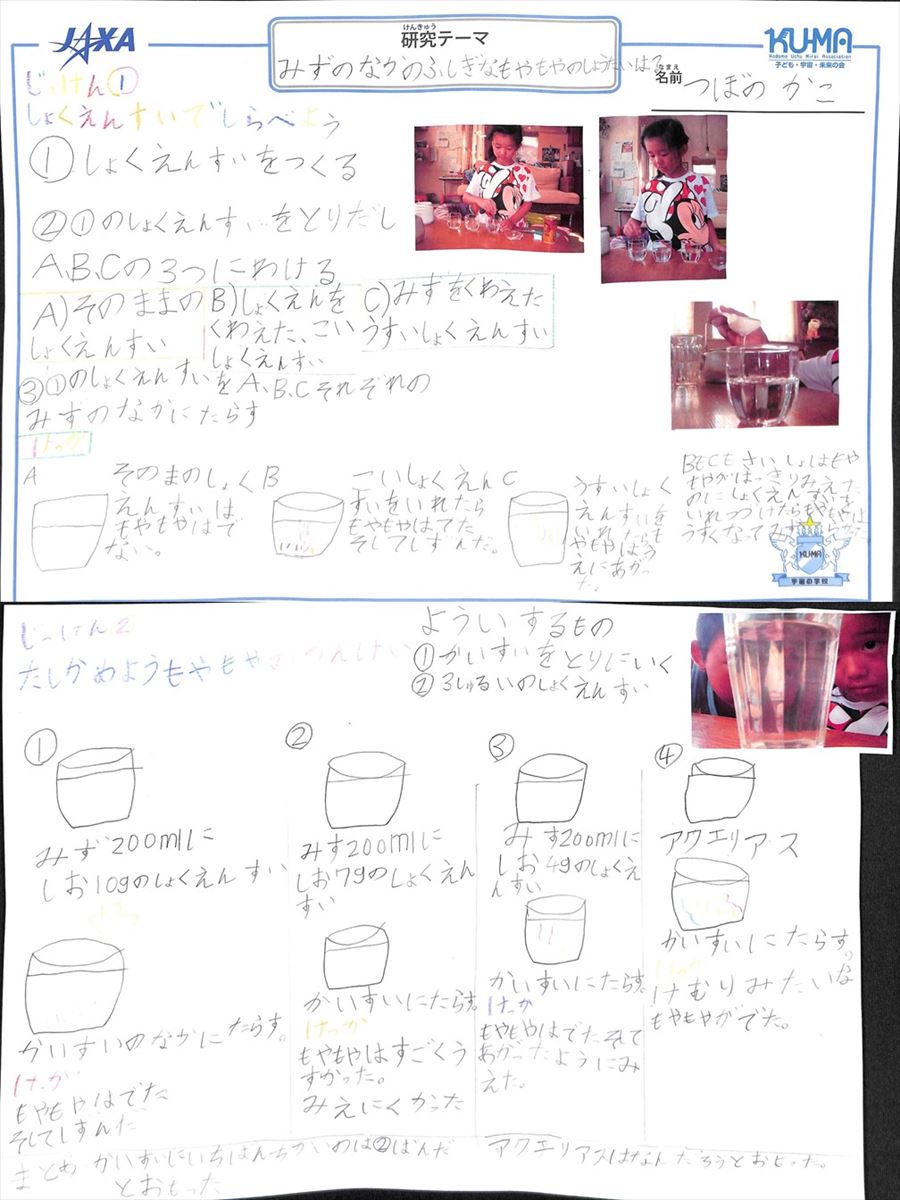 JAXA
けんきゅう
研究テーマ
みずのなかのふしぎなもやもやのしょうたいは?
KU-MA
Kodomo Uchu Mirai Association
子ども・宇宙・未来の会
なまえ
名前 つぼの かこ
じっけん①
しょくえんすいでしらべよう
①しょくえんすいをつくる
②①のしょくえんすいをとりだし
A、B、Cの3つにわける
A)そのままの
しょくえんすい
B)しょくえんを
くわえた、こい
しょくえんすい
C)みずをくわえた
うすいしょくえんすい
③①のしょくえんすいをA、B、Cそれぞれの
みずのなかにたらす
けっか
A
そのまのしょく
えんすいは
もやもやはで
ない。
B
こいしょくえん
すいをいれたら
もやもやはでた
そしてしずんだ。
C
うすいしょく
えんすいを
いれたらも
やもやはう
えにあがっ
た。
BもCもさいしょはもや
もやがはっきりみえた
のにしょくえんすいを
いれつづけたらもやもやは
うすくなって
KU-MA
宇宙の学校
じっけん2
たしかめようもやもや
よういするもの
①かいすいをとりにいく
②3しゅるいのしょくえんすい
①
みず200mlに
しお10gのしょくえんすい
かいすいのなかにたらす。
けっか
もやもやはでた
そしてしずんだ
②
みす200mlに
しお7gのしょくえん
すい
かいすいにたらす。
けっか
もやもやはすごくう
すかった。
みえにくかった
③
みず200mlに
しお4gのしょくえ
んすい
かいすいにたらす。
けっか
もやもやはでた そして
あがったようにみ
えた。
④
アクエリアス
かいすいにたらす。
けっか
けむりみたいな
もやもやがでた。
まとめ・かいすいにいちばんちかいのは②ばんだ
とおもった
アクエリアスはなんだろうとおもった。